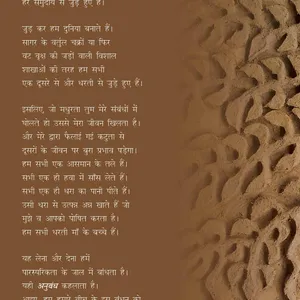 हर समुदाय से जुड़े हुए हैं।
जुड़ कर हम दुनिया बनाते हैं।
सागर के वर्तुल चक्रों या फिर
वट वृक्ष की जड़ों वाली विशाल
शाखाओं की तरह हम सभी
एक दूसरे से और धरती से जुड़े हुए हैं।
इसलिए, जो मधुरता तुम मेरे संबंधों में
घोलते हो उससे मेरा जीवन खिलता है।
और मेरे द्वारा फैलाई गई कटुता से
दूसरों के जीवन पर बुरा प्रभाव पड़ेगा।
हम सभी एक आसमान के तले हैं।
सभी एक ही हवा में साँस लेते हैं।
सभी एक ही धरा का पानी पीते हैं।
उसी धरा से उत्पन्न अन्न खाते हैं जो
मुझे व आपको पोषित करता है।
हम सभी धरती माँ के बच्चे हैं।
यह लेना और देना हमें
पारस्परिकता के जाल में बांधता है।
यही अनुबंध कहलाता है।